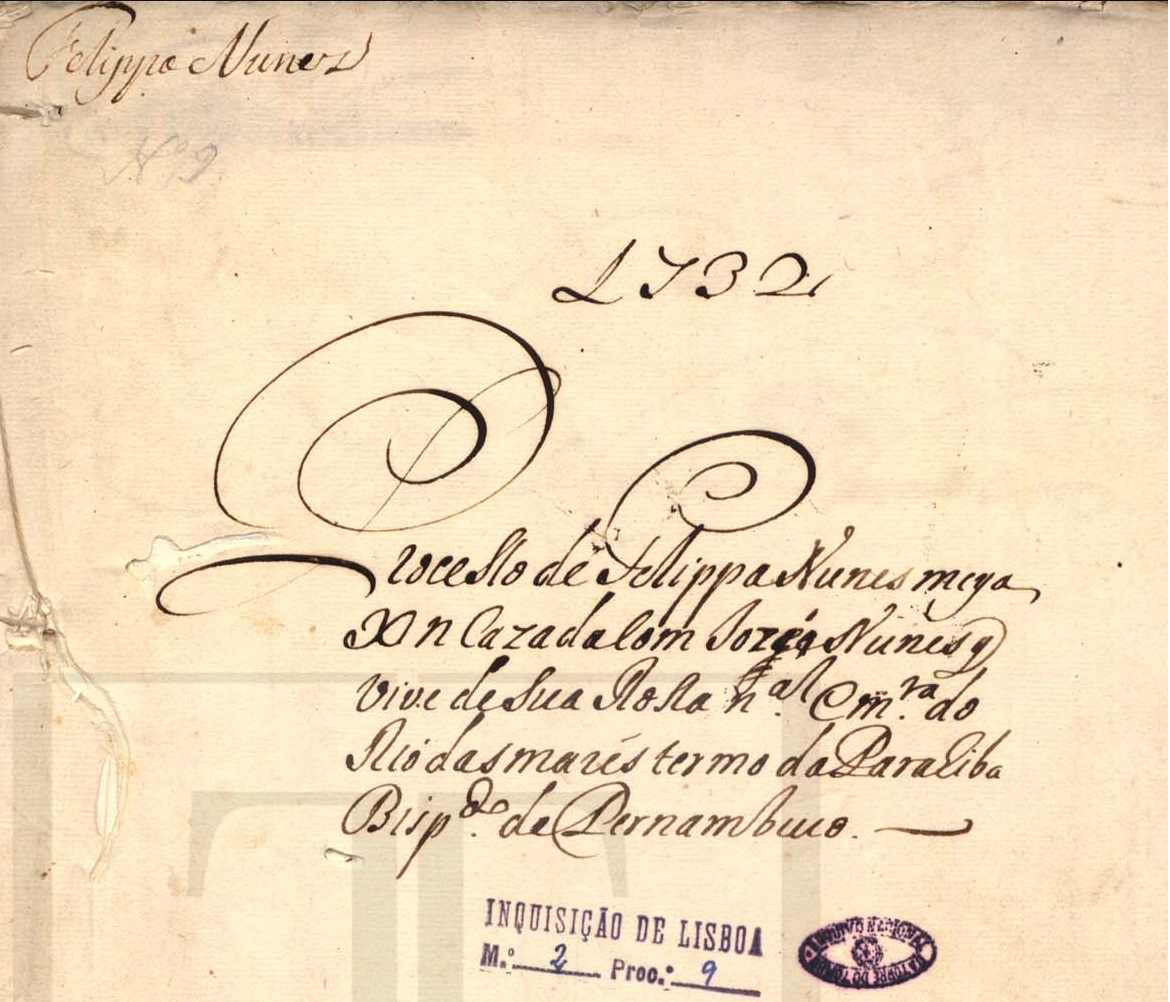 Felippa Nunes
Nº 9.
1732
Processo de Felippa Nunes meya
XN Cazada com Jorge Nunes q
vive de sua Rossa n.al e m.ra do
Rio das marés termo da Paraiba
Bisp.do de Pernambuco.
INQUISIÇÃO DE LISBOA
M.º 2 Proc.º 9
ARQUIVO NACIONAL
DA TORRE DO TOMBO